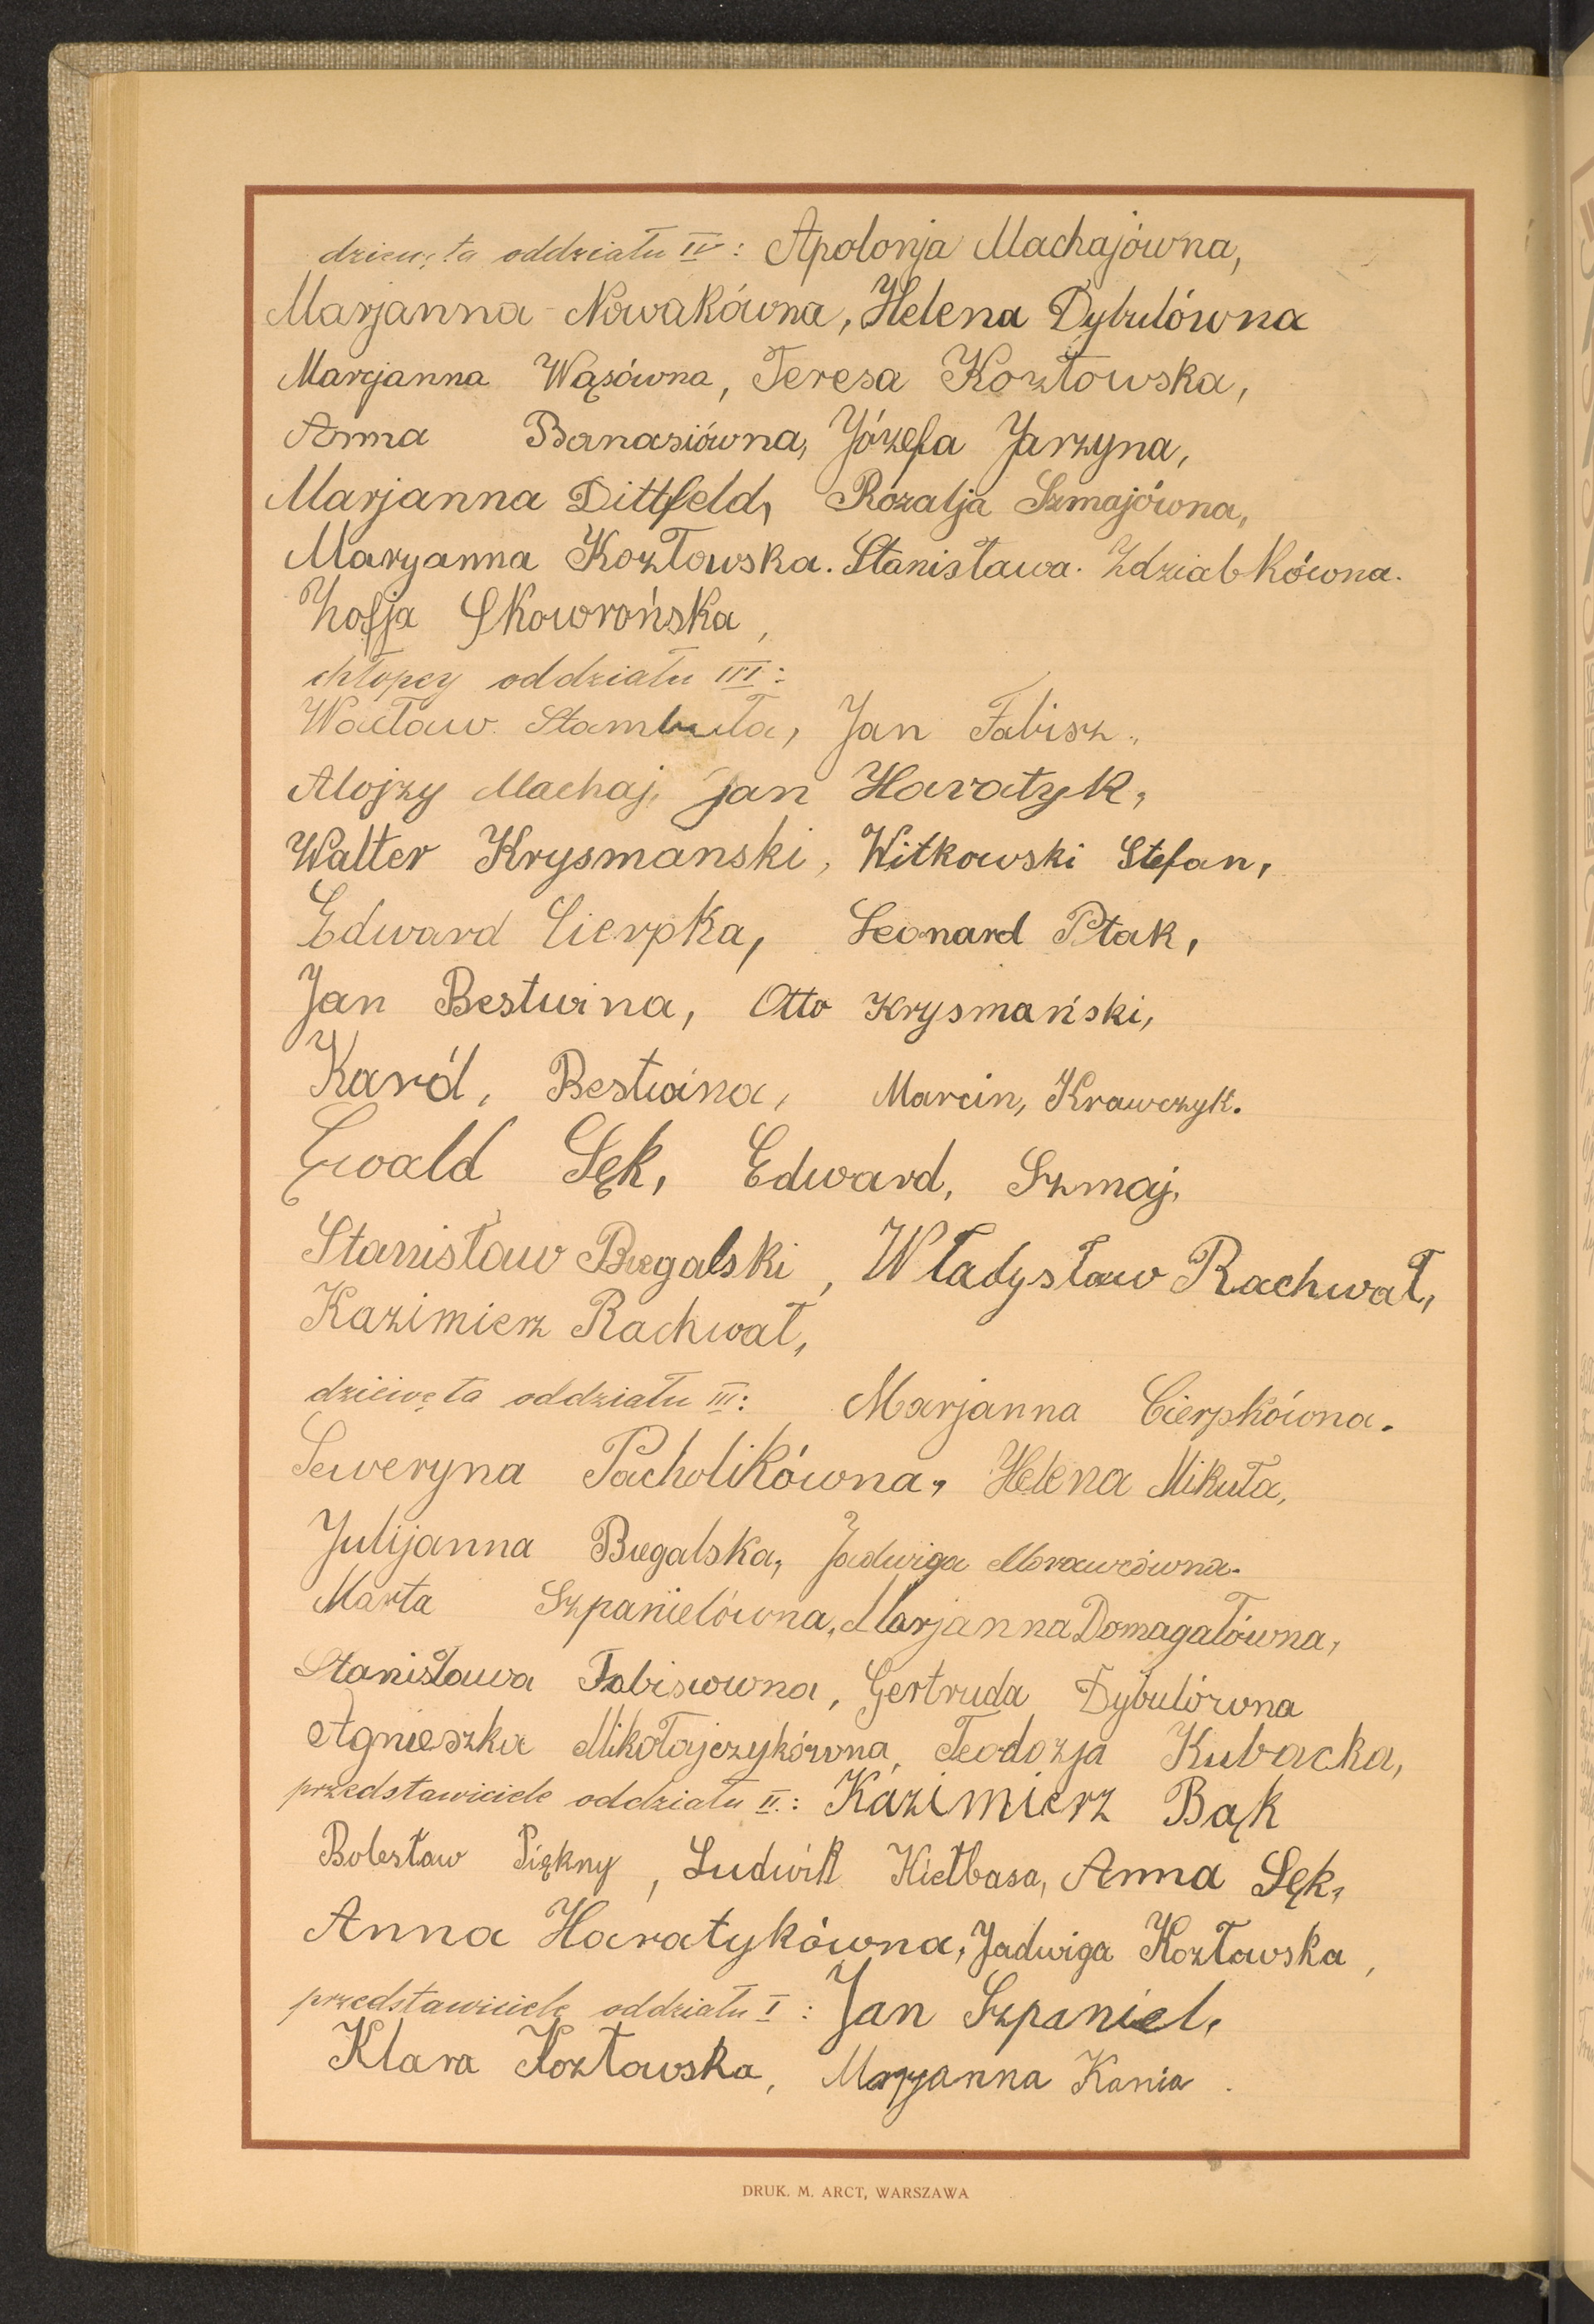 dziewczęta oddziału IV: Apolonja Machajówna,
Marjanna Nowakówna, Helena Dybulówna
Marjanna Wąsówna, Teresa Kozłowska,
Anna Banasiówna, Józefa Jarzyna,
Marjanna Dittfeld, Rozalja Szmajówna,
Maryanna Kozłowska. Stanisława. Zdziabkówna.
Zofja Skowrońska,
chłopcy oddziału III:
Wacław Stambuła, Jan Fabisz.
Alojzy Machaj, Jan Haratyk,
Walter Krysmanski, Witkowski Stefan,
Edward Cierpka, Leonard Ptak,
Jan Bestwina, Otto Krysmański,
Karól, Bestwina, Marcin, Krawczyk.
Ewald Sęk, Edward, Szmaj,
Stanisław Biegalski, Władysław Rachwał,
Kazimierz Rachwał,
dziewczęta oddziału III: Marjanna Cierpkówna.
Seweryna Pacholikówna, Helena Mikuła,
Julijanna Biegalska, Jadwiga Morawcówna.
Marta Szpanielówna, Marjanna Domagałówna,
Stanisława Fabisowna, Gertruda Dybulówna
Agnieszka Mikołajczykówna, Teodozja Kubacka,
przedstawiciele oddziału II.: Kazimierz Bąk
Bolesław Piękny, Ludwik Kiełbasa, Anna Sęk,
Anna Haratykówna, Jadwiga Kozławska,
przedstawiciele oddziału I: Jan Szpaniel,
Klara Kozławska, Maryanna Kania.
DRUK. M. ARCT, WARSZAWA